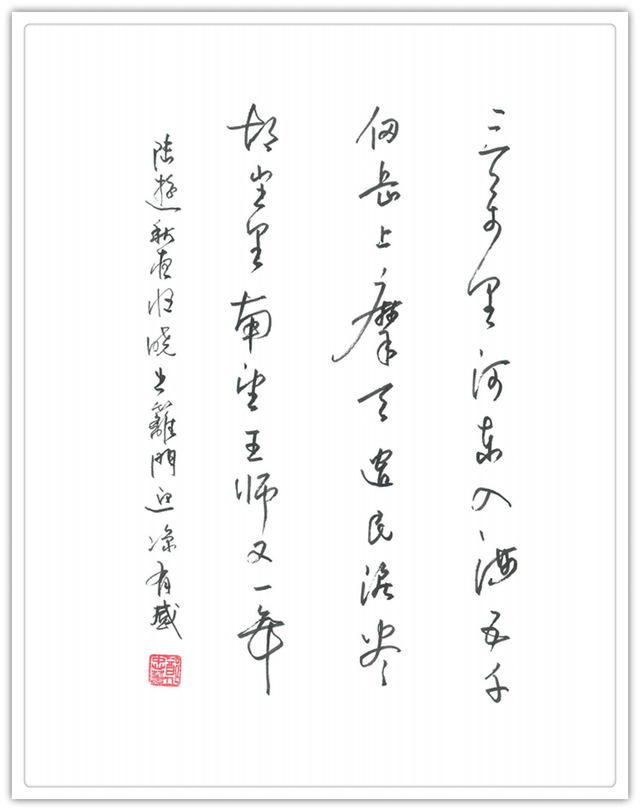 三万里河东入海五千
仞岳上摩天遗民泪尽
胡尘里南望王师又一年
陆游秋夜将晓出篱门迎凉有感